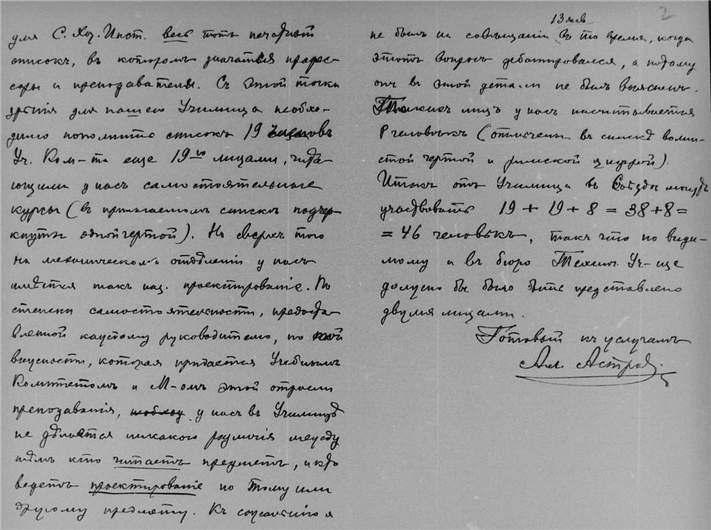 для С. Хоз. Инст. весь тотъ печатный
списокъ, въ которомъ значатся профес-
соры и преподаватели. Съ этой точки
зрѣнія для нашего Училища необхо-
димо пополнить списокъ 19 членовъ
Уч. Ком-та еще 19-ю лицами, чита-
ющими у насъ самостоятельные
курсы (въ прилагаемомъ спискѣ подчер-
кнуты одной чертой). Но сверхъ того
на механическомъ отдѣленіи у насъ
имѣется такъ наз. проектированіе. По
степени самостоятельности, предостав-
вленной каждому руководителю, по
которая придается Учебнымъ
Комитетомъ и М-омъ этой отрасли
преподаванія, у насъ въ Училищѣ
не дѣлается никакого различія между
тѣмъ кто читаетъ предметъ, и кто
ведетъ проектированіе по тому или
другому предмету. Къ сожалѣнію я
2
13 янв
не былъ на совѣщаніи въ то время, когда
этотъ вопросъ дебатировался, а потому
онъ въ этой детали не былъ выясненъ.
Такихъ лицъ у насъ насчитывается
8 человѣкъ (отмѣчены въ спискѣ волни-
стой чертой и римской цифрой).
Итакъ отъ Училища въ Съѣздѣ могутъ
участвовать 19 + 19 + 8 = 38 + 8 =
= 46 человѣкъ, такъ что по види-
мому и въ бюро Технич. Уч-ще
должно бы было быть представлено
двумя лицами.
Готовый къ услугамъ
Ал. Астровъ.